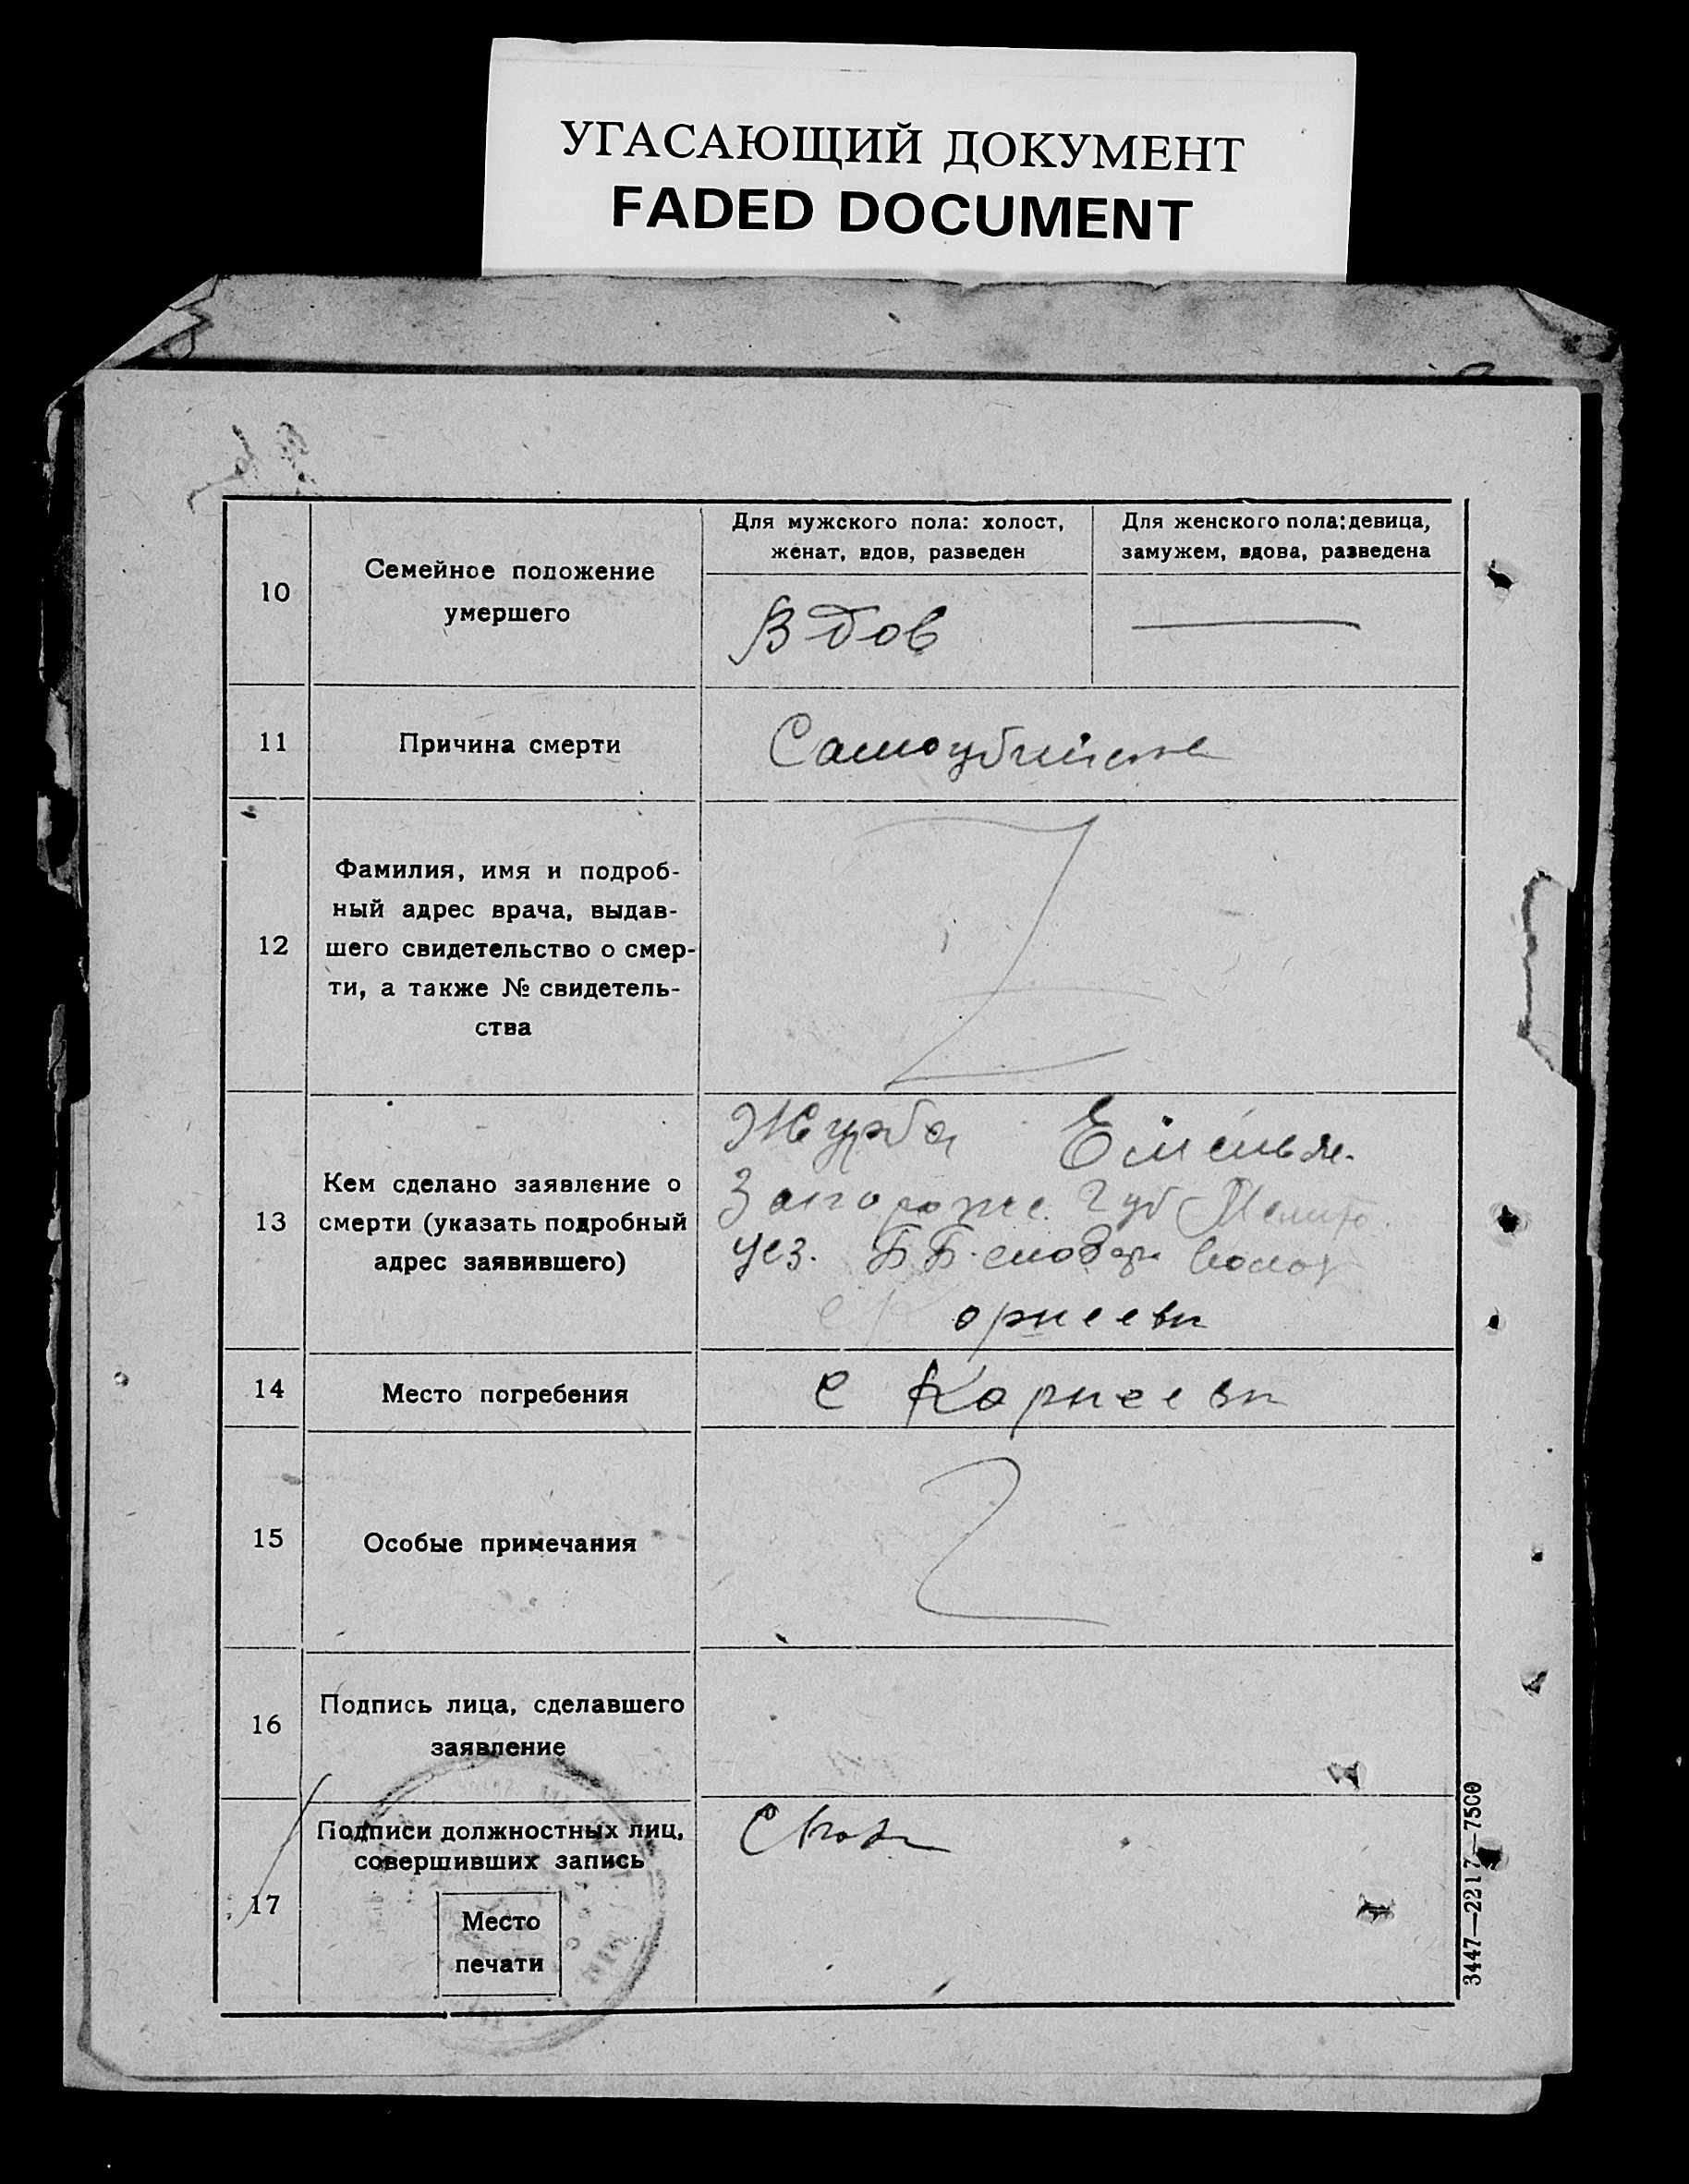 УГАСАЮЩИЙ ДОКУМЕНТ
FADED DOCUMENT
10
Семейное положение
умершего
Для мужского пола: холост,
женат, вдов, разведен
Для женского пола: девица,
замужем, вдова, разведена
Вдов
11
Причина смерти
Самоубийств
12
Фамилия, имя и подроб-
ный адрес врача, выдав-
шего свидетельство о смер-
ти, а также № свидетель-
ства
13
Кем сделано заявление о
смерти (указать подробный
адрес заявившего)
Журба Емельян
Запорожс. Губ Мелито.
уез. ББ
с Корнеевк
14
Место погребения
с Корнеевк
15
Особые примечания
16
Подпись лица, сделавшего
заявление
17
Подписи должностных лиц,
совершивших запись
Место
печати
3447—2217—7500